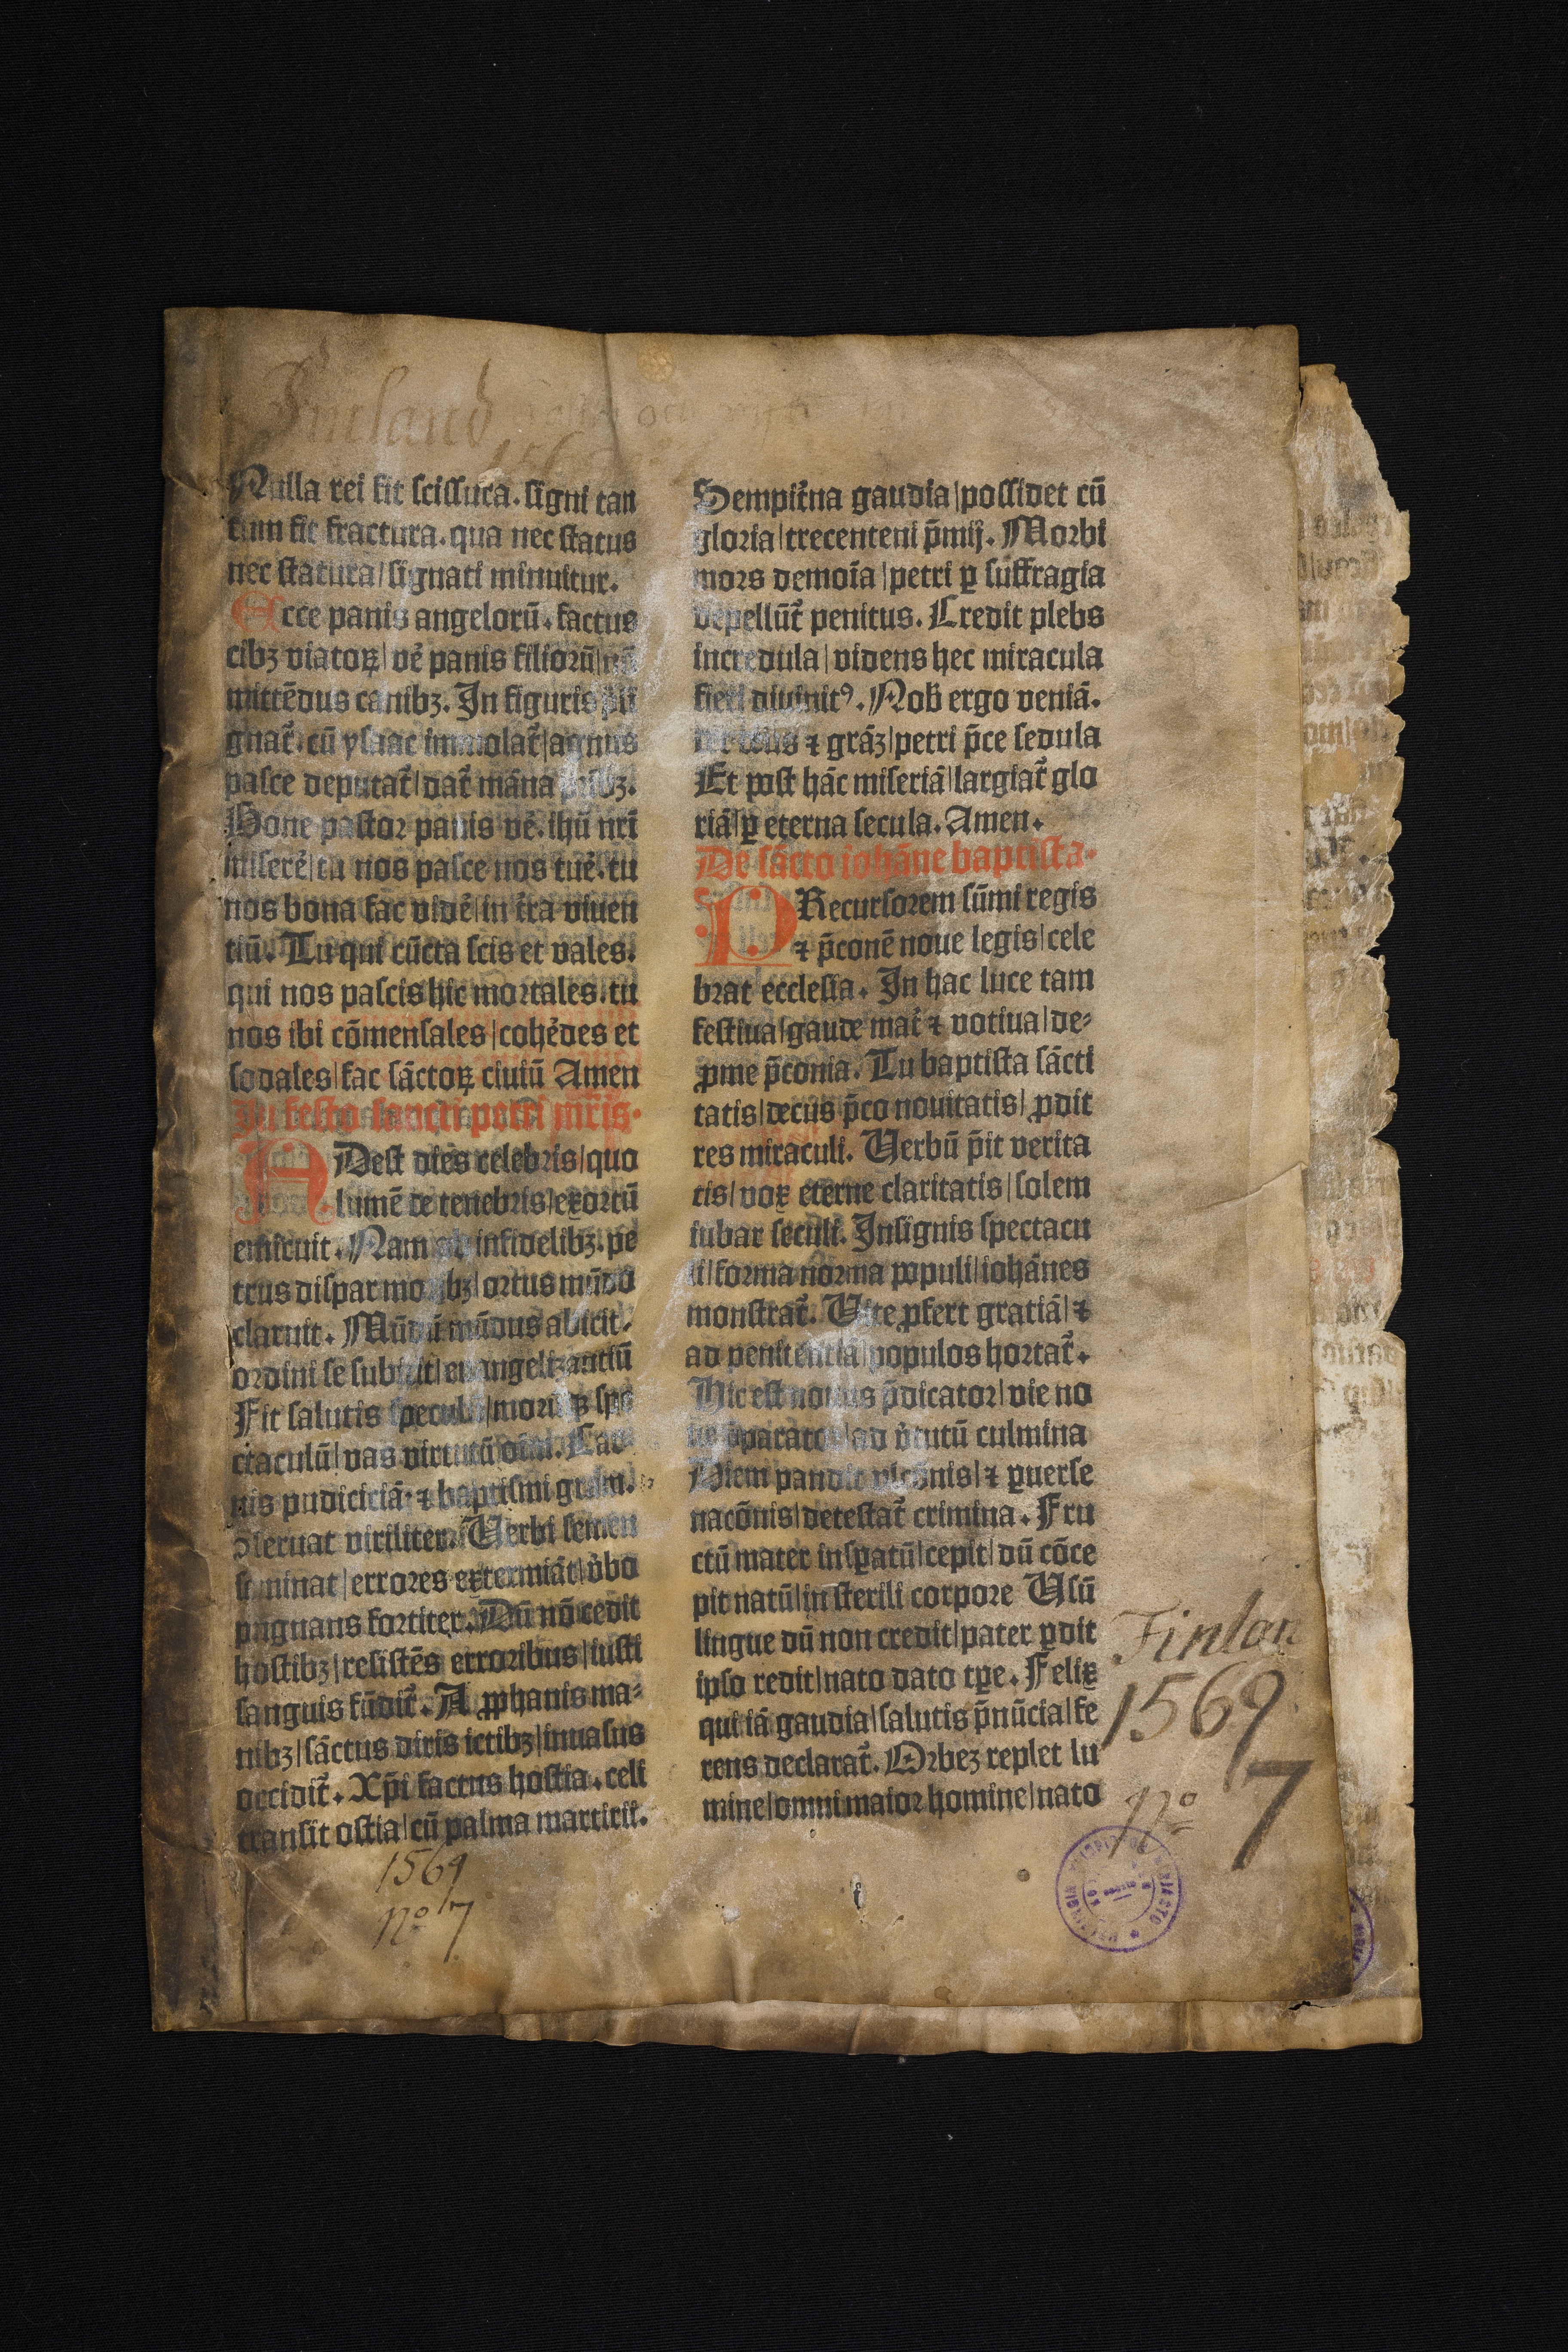 Finland
156
Nulla rei fit scissura. signi tan
tum fit fractura. qua nec status
nec statura/signati minuitur.
Ecce panis angelorū. factus
cibꝫ viatoꝝ/ve᷑ panis filiorū/nō
mittēdus canibꝫ. In figuris
gnat᷑. cū ysaac immolat᷑/agnus
pasce deputat᷑/dat᷑ māna
Bone pastor panis ve᷑. ihū nrī
misere᷑/tu nos pasce nos tue᷑. tu
nos bona fac vide᷑/in t᷑ra viuen
tiū. Tu qui cūcta scis et vales.
qui nos pascis hic mortales. tu
nos ibi cōmensales/cohe᷑des et
sodales/fac sāctoꝝ ciuiū Amen
In festo sancti petri mr̄is.
ADest dies celebris/quo
lumē de tenebris/exortū
emicuit. Nam infidelibꝫ. pe
trus dispar mo bꝫ/ortus mūdo
claruit. mūdus abicit.
ordini se subicit/euangelizantiū
Fit salutis
ctaculū/vas virtutū
uis pudiciciā. ⁊ baptismi
ẜeruat viriliter. Verbi semen
seminat/errores extermiāt/v᷑bo
pugnans fortiter. Dū nō cedit
hostibꝫ/resistēs erroribus/iusti
sanguis fūdit᷑. A ꝓphanis ma⸗
nibꝫ/sāctus diris ictibꝫ/inuasus
occidit᷑. Xp̄i factus hostia. celi
transit ostia/cū palma martirii.
1569
nº 7
Sempit᷑na gaudia/possidet cū
gloria/trecenteni p̄mij. Morbi
mors demoīa/petri ꝑ suffragia
depellūt᷑ penitus. Credit plebs
incredula/videns hec miracula
fieri diuinitꝰ. Nob̄ ergo veniā.
⁊ grāꝫ/petri p̄ce sedula
Et post hāc miseriā/largiat᷑ glo
riā/ꝑ eterna secula. Amen.
De sācto iohāne baptista.
PRecursorem sūmi regis
⁊ p̄conē noue legis/cele
brat ecclesia. In hac luce tam
festiua/gaude mat᷑ ⁊ votiua/de⸗
ꝓme p̄conia. Tu baptista sācti
tatis/decus p̄co nouitatis/ ꝓdit
res miraculi. Verbū p̄it verita
tis/vox eterne claritatis/solem
iubar seculi. Insignis spectacu
li/forma norma populi/iohānes
monstrat᷑. Vite ꝓfert gratiā/⁊
ad penitentiā/populos hortat᷑.
Hic est nouus p̄dicator/vie no
ue p̄parator/ad v᷑tutū culmina
Diem pandit vlcōnis/⁊ ꝑuerse
nacōnis/detestat᷑ crimina. Fru
ctū mater insꝑatū/cepit/dū cōce
pit natū/in sterili corpore Vsū
lingue dū non credit/pater ꝑdit
ipso redit/nato dato tꝑe. Felix
qui iā gaudia/salutis p̄nūcia/fe
rens declarat᷑. Orbeꝫ replet lu
mine/omni maior homine/nato
Finlan
1569
Nº 7